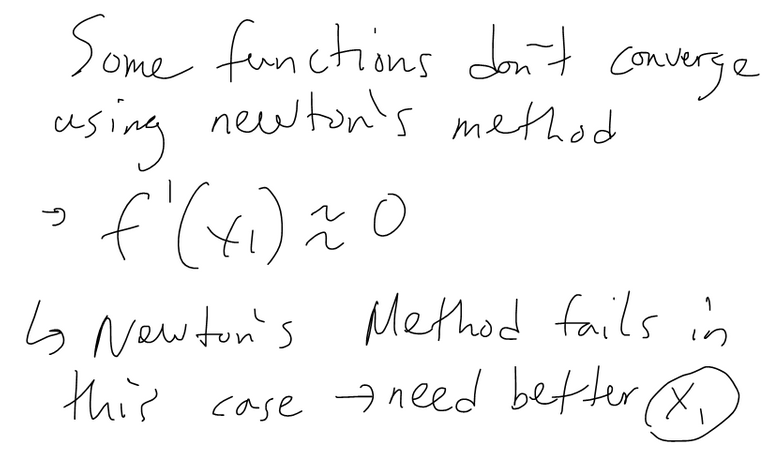 Some functions don't converge
using newton's method
→ f'(x₁) ≈ 0
↳ Newton's Method fails in
this case → need better x₁